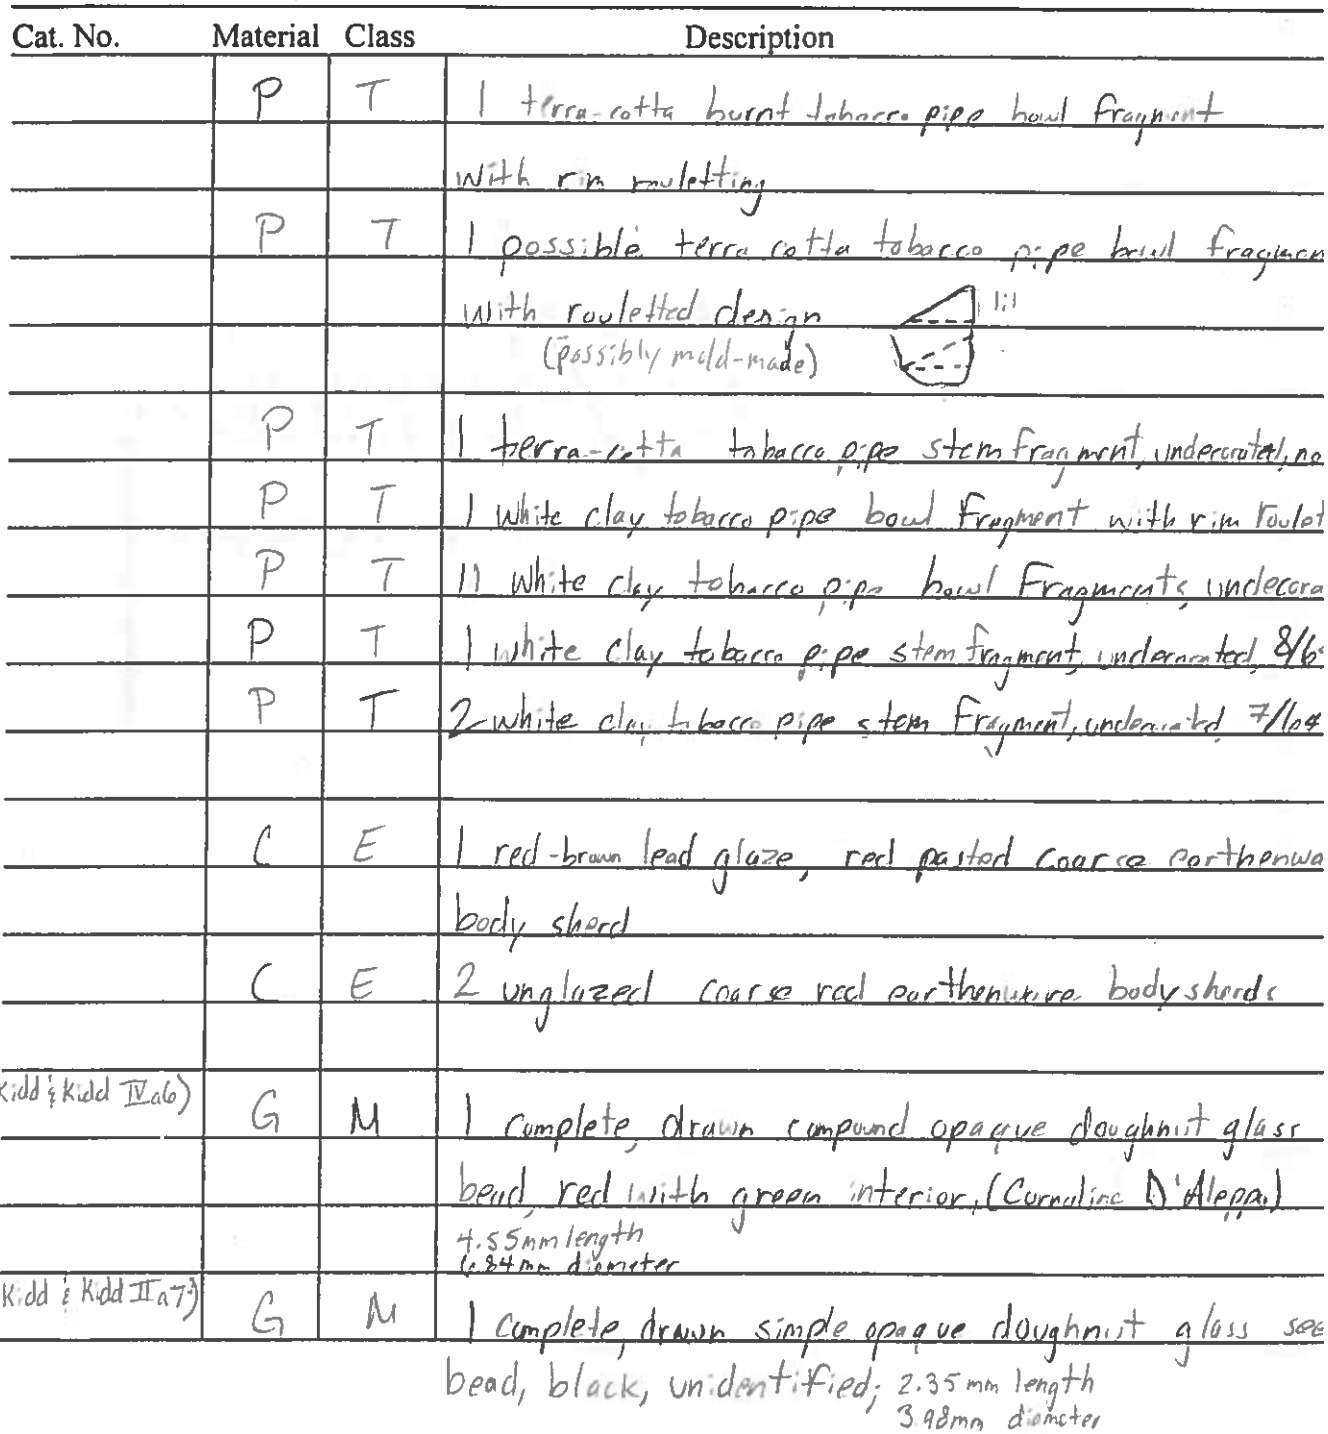 Cat. No. Material Class Description
P T 1 terra-cotta burnt tobacco pipe bowl fragment
with rim rouletting
P T 1 possible terra cotta tobacco pipe bowl fragmen
with rouletted design 1:1
(possibly mold-made)
P T 1 terra-cotta tobacco pipe stem fragment, undecorated, no
P T 1 white clay tobacco pipe bowl fragment with rim roulet
P T 11 white clay tobacco pipe bowl fragments, undecora
P T 1 white clay tobacco pipe stem fragment, undecorated, 8/6
P T 2 white clay tobacco pipe stem fragment, undecorated 7/64
C E 1 red-brown lead glaze, red pasted coarse earthenwa
body sherd
C E 2 unglazed coarse red earthenware body sherds
Kidd & Kidd IVa6) G M 1 complete, drawn compound opaque doughnut glass
bead, red with green interior, (Cornaline D'Aleppo)
4.55mm length
6.84mm diameter
Kidd & Kidd IIa7?) G M 1 complete, drawn simple opaque doughnut glass see
bead, black, unidentified; 2.35mm length
3.98mm diameter